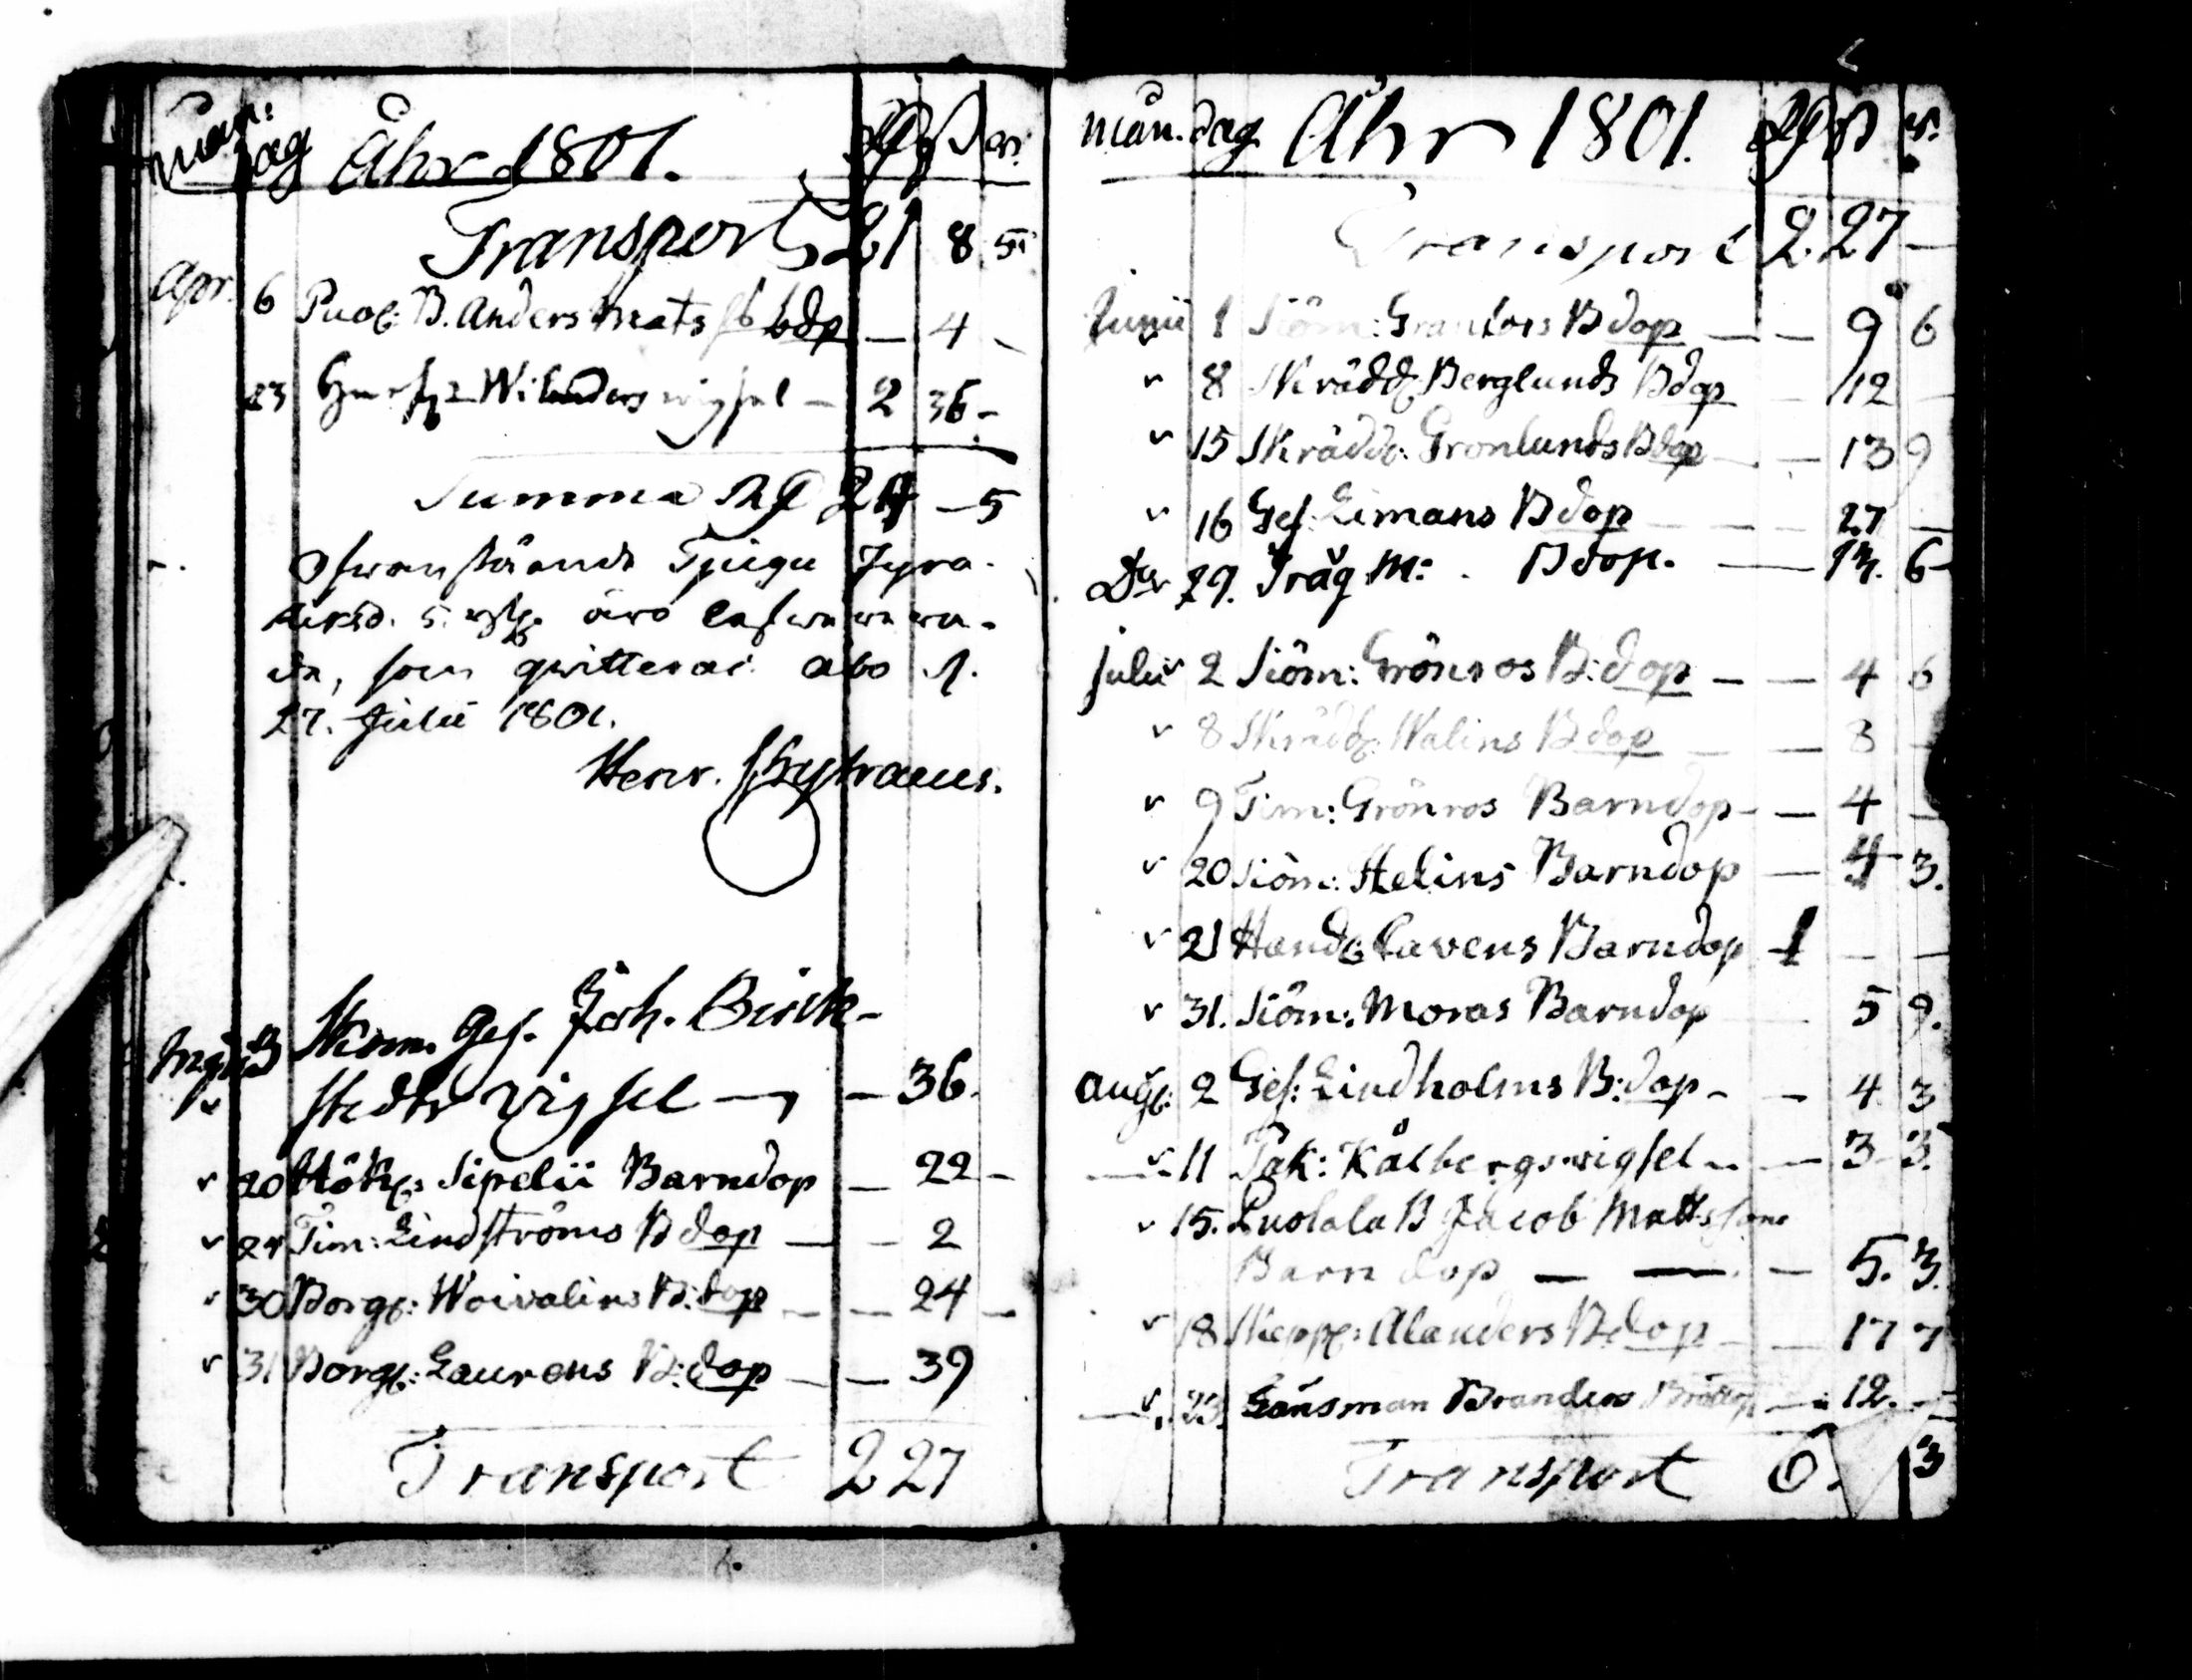 mån: dag Åhr 1801. Rd ß rs.
Transport 21 8 5
Apr. 6 Puol: B. Anders Mats bdp — 4 -
23 Wilanders wigsel — 2 36 -
Summa Rd 24 — 5
Ofwanstående Tjugu Fyra
Riksd. 5 äro lefwerera-
de, som qvitteras Åbo d.
27. Julii 1801.
Henr.
Maji 3 Skom. Ges. Joh. Birck-
stedts vigsel — — 36.
v 20 Hökg: Sipelii Barndop — 22 —
v 24 Tim: Lindströms B dop — — 2
v 30 Borg: Woivalins B: dop — — 24 —
v 31 Borg: Laurens B: dop — — 39
Transport 2 27
mån. dag Åhr 1801. Rd ß rs.
Transport 2. 27 —
Junii 1 Siöm: Granfors B dop — — 9 6
v 8 Skrädd: Berglunds Bdop — 12 —
v 15 Skrädd: Gronlunds Bdop — — 13 9
v 16 Ges. Limans B dop — — 27 —
Dito 29. Träg M: Bdop. — 13. 6
Julii v 2 Siöm: Grönros B: dop — — 4 6
v 8 Skrädd: Walins Bdop — — 3 —
v 9 Tim: Grönros Barndop — — 4 —
v 20 Siöm: Helins Barndop — 4 3.
v 21 Handl: Cavens Barndop 1 — —
v 31. Siöm: Moras Barndop 5 9.
Aug: 2 Ges: Lindholms B: dop - — 4 3
v 11 Tak: Kålbergs wigsel — — 3 3.
v 15. Luolala B Jacob Mattssons
Barn dop — — — 5. 3.
v 18 Skepp: Alanders Bdop — — 17 7
v 23. Länsman Branders — 12. —
Transport 6. 3